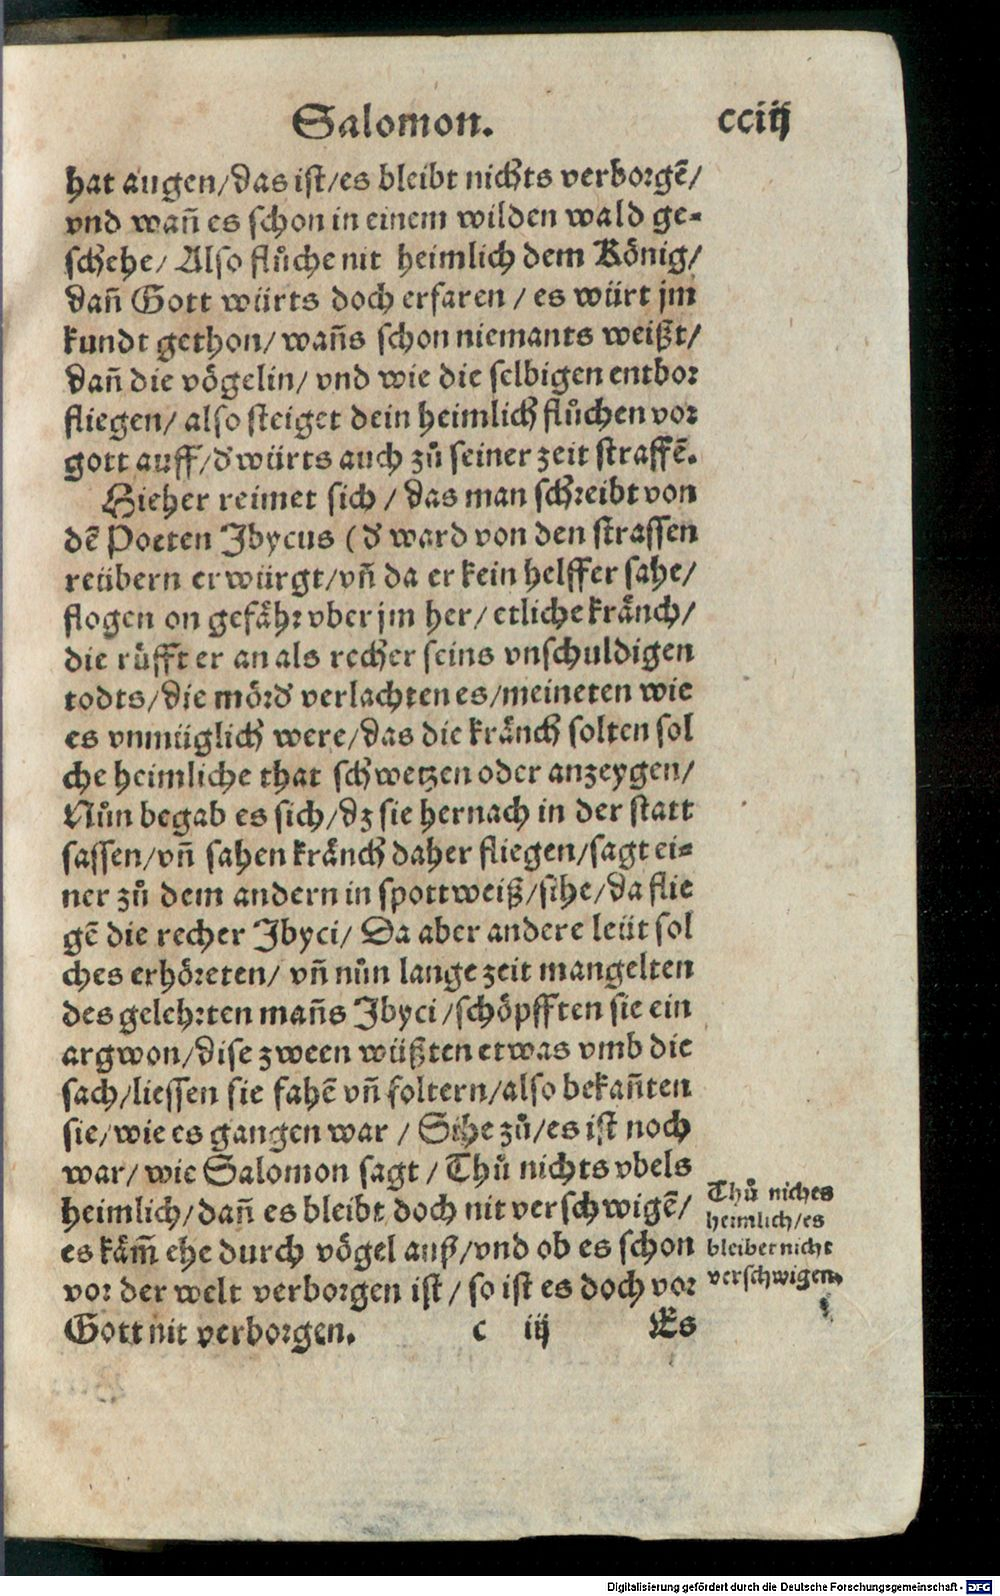 Salomon. cciij
hat augen/das ist/es bleibt nichts verborgẽ/
vnd wañ es schon in einem wilden wald ge⸗
schehe/ Also flůche nit heimlich dem König/
dañ Gott würts doch erfaren / es würt jm
kundt gethon/ wañs schon niemants weißt/
dañ die vögelin/ vnd wie die selbigen entbor
fliegen/ also steiget dein heimlich flůchen vor
gott auff/d' würts auch zů seiner zeit straffẽ.
Hieher reimet sich / das man schreibt von
dẽ Poeten Jbycus (d' ward von den strassen
reübern erwürgt/vñ da er kein helffer sahe/
flogen on gefähr vber jm her/ etliche kränch/
die růfft er an als recher seins vnschuldigen
todts/die mörd' verlachten es/meineten wie
es vnmüglich were/das die kränch solten sol
che heimliche that schwetzen oder anzeygen/
Nůn begab es sich/dz sie hernach in der statt
sassen/vñ sahen kränch daher fliegen/sagt ei⸗
ner zů dem andern in spottweiß/sihe/da flie
gẽ die recher Jbyci/ Da aber andere leüt sol
ches erhöreten/ vñ nůn lange zeit mangelten
des gelehrten mañs Jbyci/schöpfften sie ein
argwon/dise zween wüßten etwas vmb die
sach/liessen sie fahẽ vñ foltern/also bekañten
sie/wie es gangen war / Sihe zů/es ist noch
war/ wie Salomon sagt / Thů nichts vbels
heimlich/dañ es bleibt doch nit verschwigẽ/
es käm̃ ehe durch vögel auß/vnd ob es schon
vor der welt verborgen ist/ so ist es doch vor
Gott nit verborgen. c iij Es
Thů nichts
heimlich/es
bleibet nicht
verschwigen.
Digitalisierung gefördert durch die Deutsche Forschungsgemeinschaft - DFG